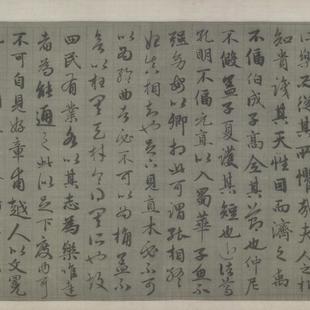 樂而從其所懼哉夫人之相
知貴識其天性因而濟之禹
不偪伯成子高全其節也仲尼
不假蓋子夏護其短也近諸葛
孔明不偪元直以入蜀華子魚不
強幼安以卿相此可謂能相終
始真相知也足下見直木必不可
以為輪曲者必不可以為桷蓋不
欲以枉其天才令得其所也故
四民有業各以其志為樂唯達
者為能通之此以足下度內耳
不可自見好章甫越人以文冕